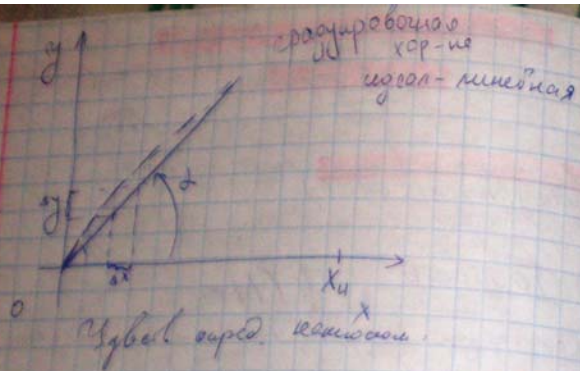 y
градуировочная
хар-ка
идеал-линейная
α
Δy
Δx
Xн
x
0
Чувств. опред. наклоном.